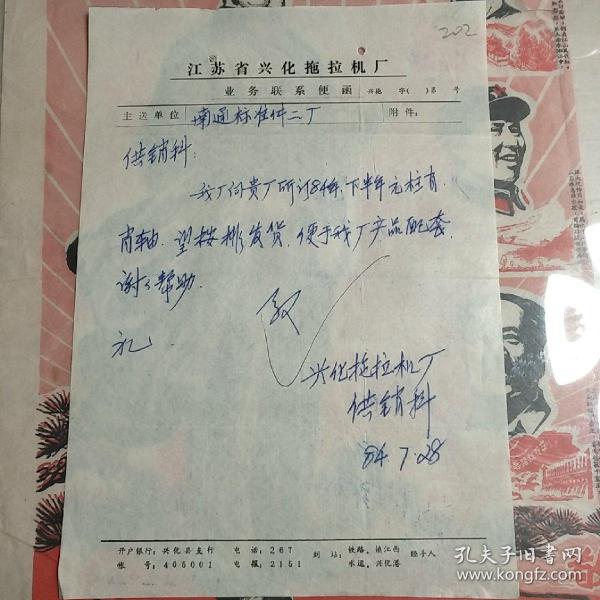 202
江苏省兴化拖拉机厂
业务联系便函 兴拖 字( )第 号
主送单位 南通标准件二厂 附件:
供销科:
我厂向贵厂所订84年下半年元柱肖
肖轴.望按排发货.便于我厂产品配套.
谢々帮助.
敬
礼
兴化拖拉机厂
供销科
84.7.28
开户银行:兴化县支行 电话:267 到站:铁路、镇江西 经手人
帐号:405001 电报:2151 水运、兴化港
孔夫子旧书网
www.kongfz.com